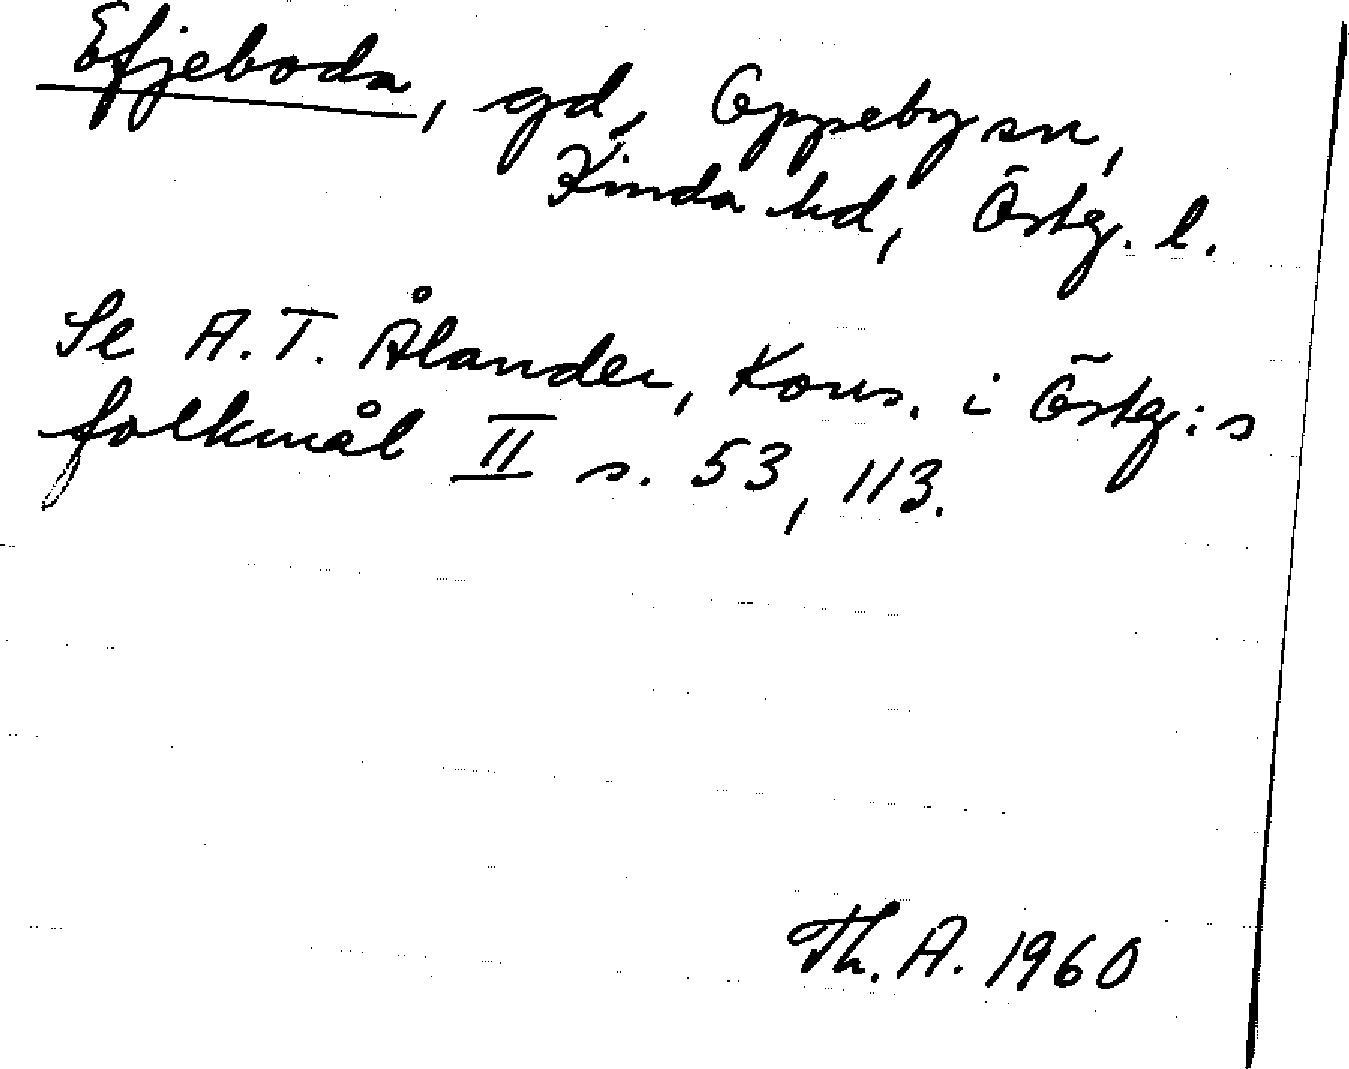 Efjeboda, gd, Oppeby sn,
Kinda hd, Östg. l.
Se A. T. Ålander, Kons. i Östg:s
folkmål II s. 53, 113.
Th. A. 1960